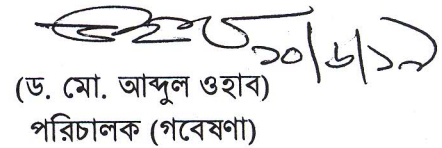 ১০/৬/১৯
(ড. মো. আব্দুল ওহাব)
পরিচালক (গবেষণা)